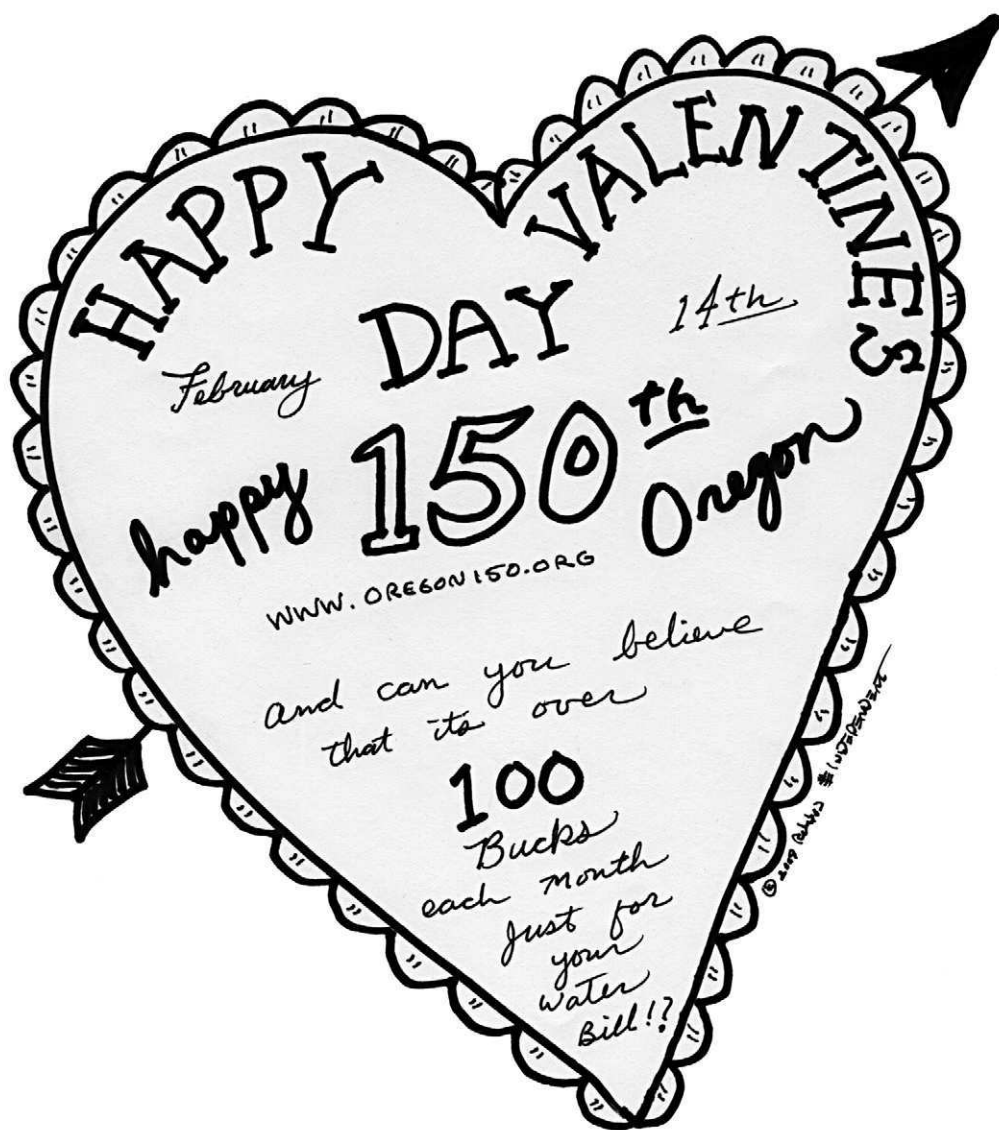 HAPPY VALENTINES
DAY
February 14th
happy 150th Oregon
WWW.OREGON150.ORG
and can you believe
that its over
100
Bucks
each month
Just for
your
water
Bill!?
© 2009 INDEPENDENT